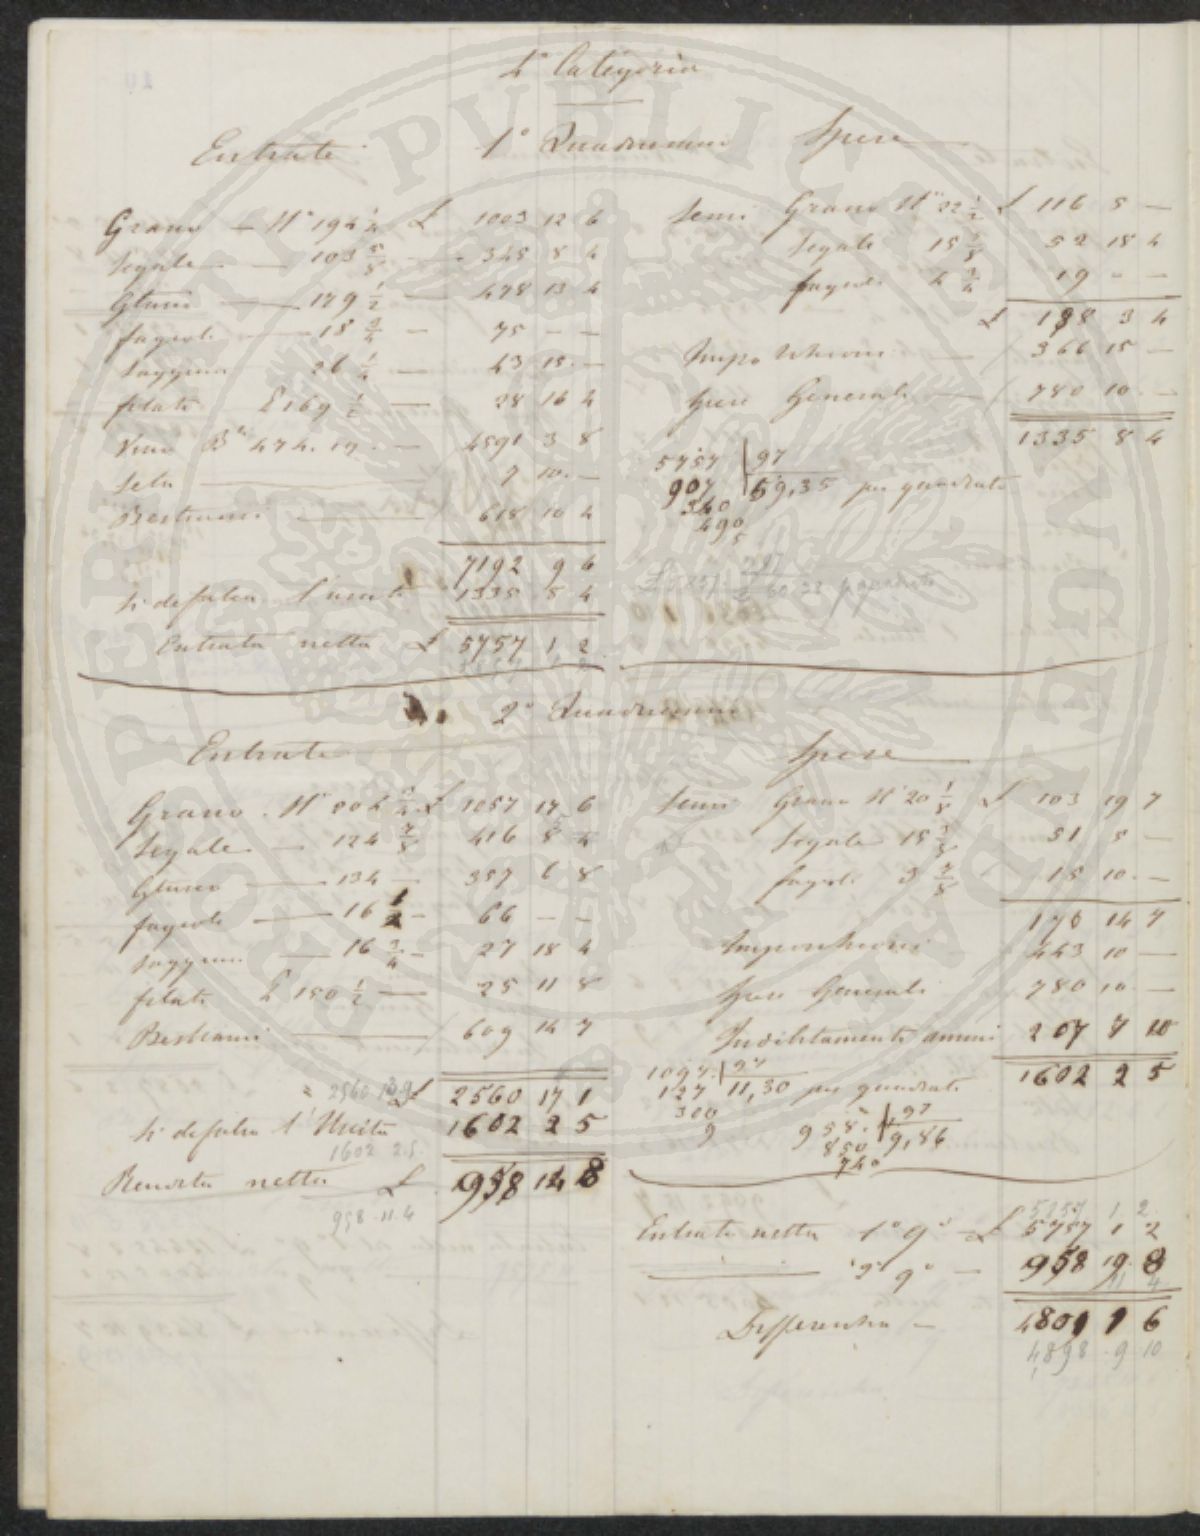 4ª Categoria
1° Quadriennio
Entrate
Grano — N° 194 1/4 £ 1003 12 6
Segale — 103 5/8 — 345 8 4
— 179 1/2 — 478 13 4
fagioli — 18 3/4 — 75 — —
Saggina 26 1/4 — 43 15 —
 £ 169 1/2 — 28 16 4
Vino Bte 474. 19 — 4591 3 8
Seta — 7 10 —
Bestiami — 618 10 4
7192 9 6
Si defalca l'uscita 1335 8 4
Entrata netta £ 5757 1 2
Spese
Semi Grano N° 22 1/2 £ 116 5 —
Segale 15 7/8 52 18 4
fagioli 4 3/4 19 — —
£ 188 3 4
366 15 —
Spese Generali — 780 10 —
1335 8 4
5757 | 97
907 59,35 per quadrato
340
490
5
2° Quadriennio
Entrate
Grano N° 204 3/4 £ 1057 17 6
Segale — 124 7/8 416 8 4
— 134 — 357 6 8
fagioli — 16 1/2 — 66 — —
Saggina — 16 3/4 — 27 18 4
 £ 150 1/2 — 25 11 8
Bestiami — 609 14 7
£ 2560 17 1
Si defalca l'Uscita 1602 2 5
1602 2.5.
Rendita netta £ 958 14 8
958 . 11 . 4
Spese
Semi Grano N° 20 1/8 £ 103 19 7
Segale 15 3/8 51 5 —
fagioli 3 7/8 15 10 —
170 14 7
443 10 —
Spese Generali 780 10 —
Indebitamento annuo 207 7 10
1602 2 5
1097 | 97
127 11,30 per quadrato
300
9
958 | 97
850 9,86
740
5757 1 2
Entrata netta 1° q° — £ 5757 1 2
— 2° q° — 958 19 8
11 4
Differenza — 4801 1 6
4898 . 9 10